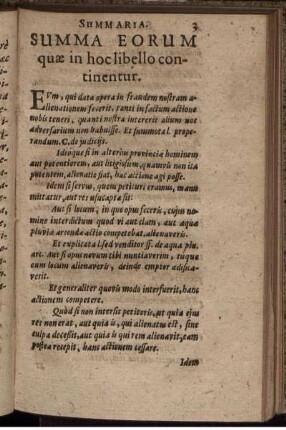 SUMMARIA. 3
SUMMA EORUM
quæ in hoc libello con-
tinentur.
EUm, qui data opera in fraudem nostram a-
lienationem fecerit, tanti in factum actione
nobis teneri, quanti nostra intererit alium nos
adversarium non habuisse. Et summota l. prope-
randum. C. de judicijs.
Idemque si in alterius provinciæ hominem
aut potentiorem, aut litigiosum, quamvis non ita
potentem, alienatio fiat, hac actione agi posse.
Idem si servus, quem petituri eramus, manu
mittatur, aut res usucapta sit:
Aut si locum, in quo opus feceris, cujus no-
mine interdictum quod vi aut clam, aut aquæ
pluviæ arcendæ actio competebat, alienaveris.
Et explicata l. sed venditor ff. de aqua plu.
arc. Aut si opus novum tibi nuntiaverim, tuque
eum locum alienaveris, deinde emptor ædifica-
verit.
Et generaliter quovis modo interfuerit, hanc
actionem competere.
Quòd si non intersit petitoris, ut quia ejus
res non erat, aut quia is, qui alienatus est, sine
culpa decessit, aut quia is qui rem alienavit, eam
postea recepit, hanc actionem cessare.
Idem